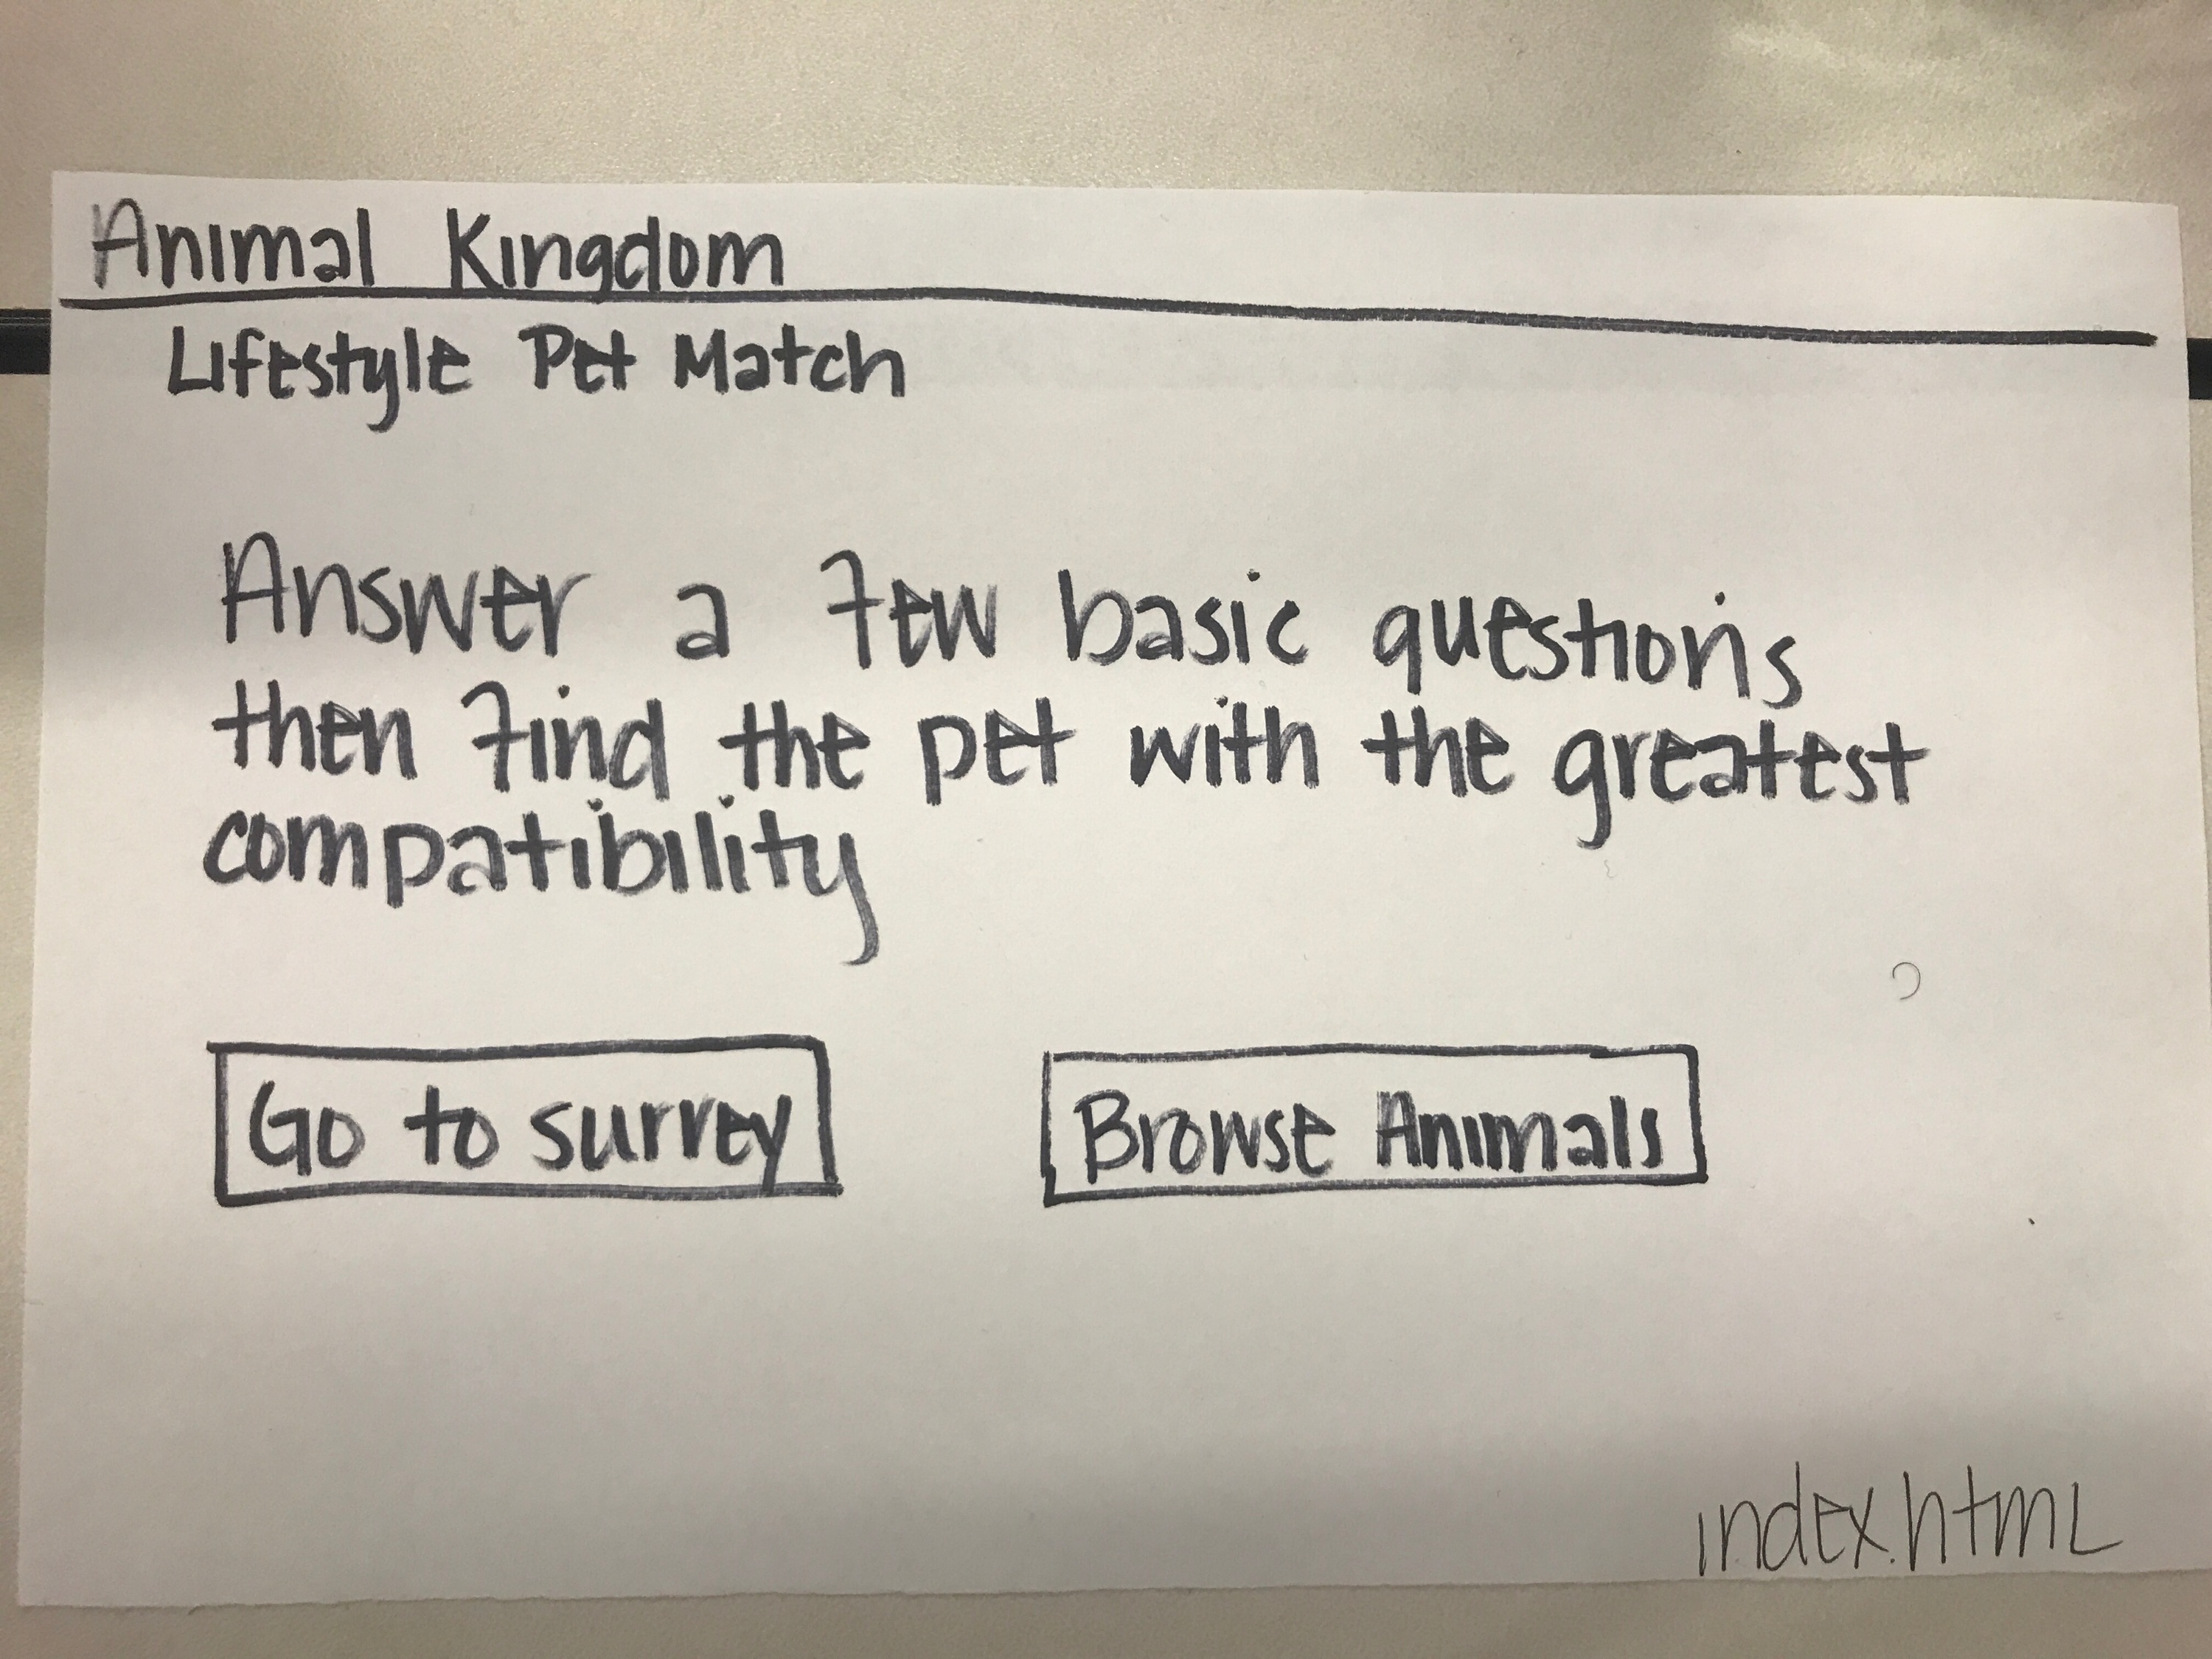 Animal Kingdom
Lifestyle Pet Match
Answer a few basic questions
then find the pet with the greatest
compatibility
Go to survey
Browse Animals
index.html